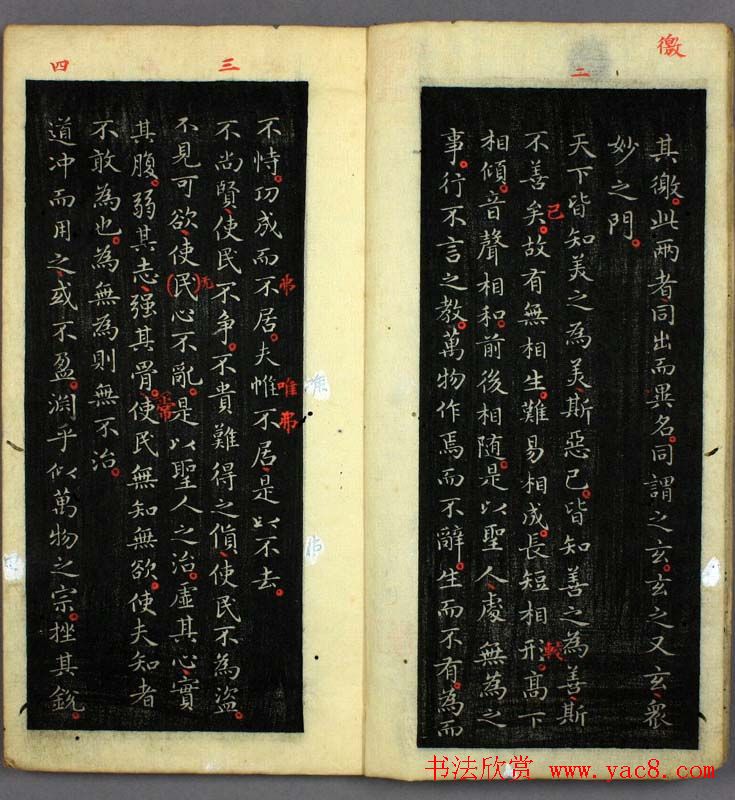 徼
二
其徼。此兩者、同出而異名。同謂之玄。玄之又玄、衆
妙之門。
天下皆知美之為美、斯惡已。皆知善之為善、斯
不善矣。故有無相生。難易相成。長短相形。高下
相傾。音聲相和。前後相隨。是以聖人處無為之
事。行不言之教。萬物作焉而不辭。生而不有。為而
已
較
三
四
不恃。功成而不居。夫惟不居、是以不去。
不尚賢、使民不爭。不貴難得之貨、使民不為盜。
不見可欲、使(民)心不亂。是以聖人之治。虛其心、實
其腹。弱其志、强其骨。使民無知無欲。使夫知者
不敢為也。為無為則無不治。
道冲而用之、或不盈。淵乎似萬物之宗。挫其銳。
弗
唯
弗
无
常
书法欣赏 www.yac8.com